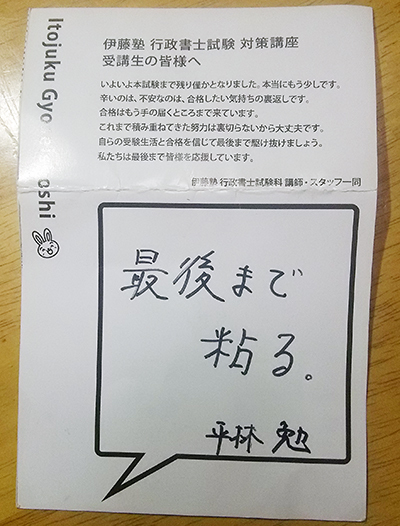 伊藤塾 行政書士試験 対策講座
受講生の皆様へ
いよいよ本試験まで残り僅かとなりました。本当にもう少しです。
辛いのは、不安なのは、合格したい気持ちの裏返しです。
合格はもう手の届くところまで来ています。
これまで積み重ねてきた努力は裏切らないから大丈夫です。
自らの受験生活と合格を信じて最後まで駆け抜けましょう。
私たちは最後まで皆様を応援しています。
伊藤塾 行政書士試験科 講師・スタッフ一同
Itojuku Gyo
oshi
最後まで
粘る。
平林 勉